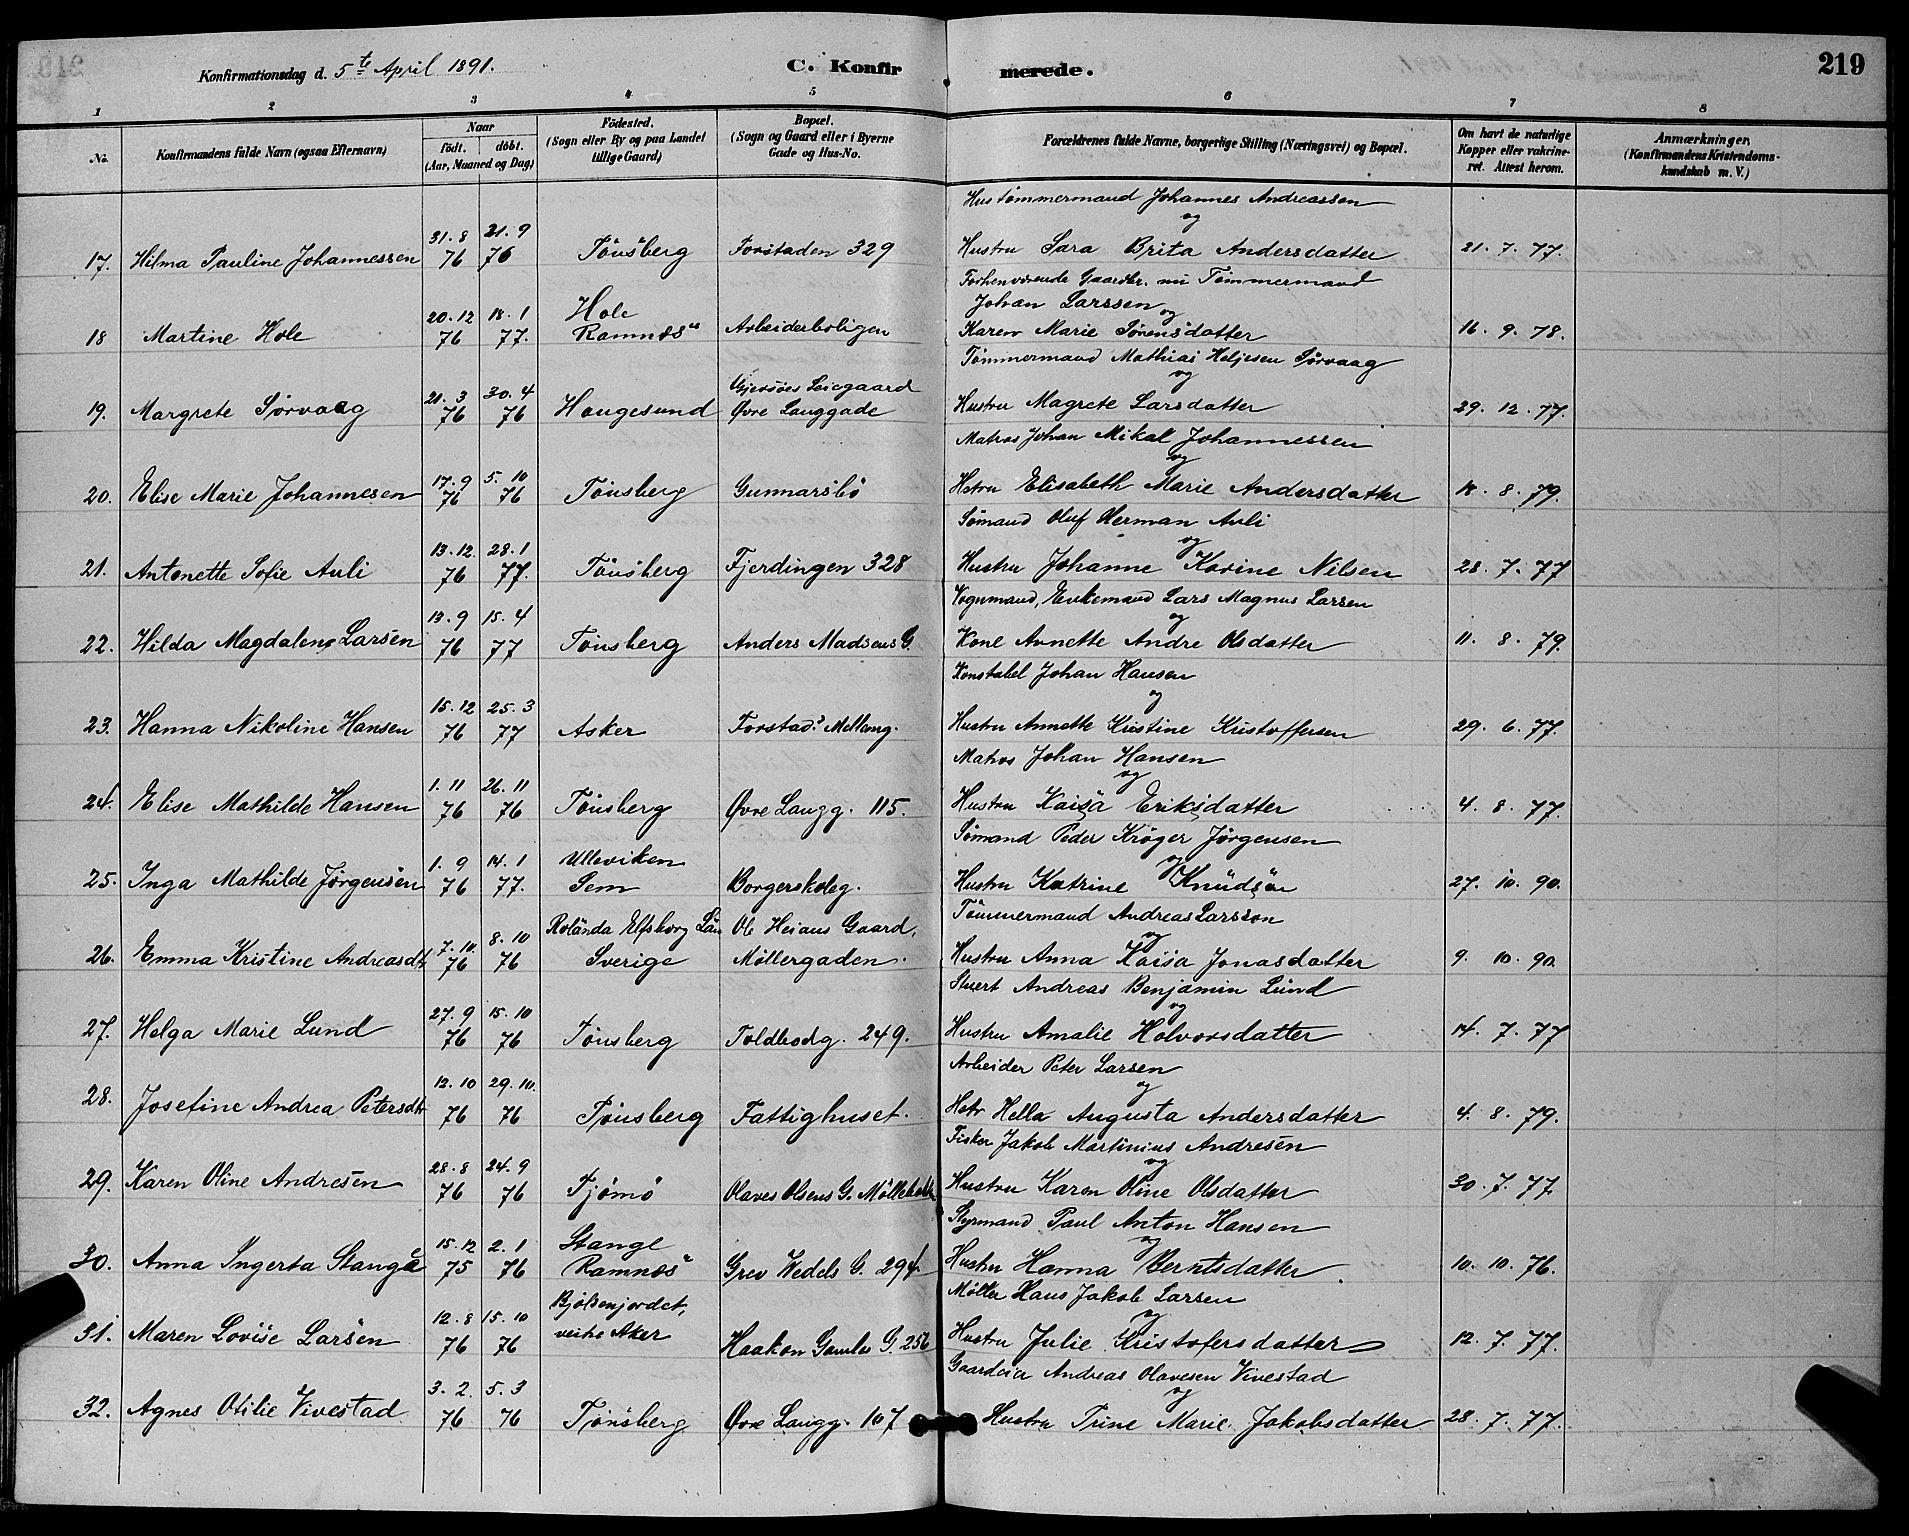 Konfirmationsdag d. 5te April 1891. C. Konfirmerede. 219
1 2 3 4 5 6 7 8
No. Konfirmandens fulde Navn (ogsaa Efternavn) Naar födt. döbt. (Aar, Maaned og Dag) Födested. (Sogn eller By og paa Landet tillige Gaard) Bopæl. (Sogn og Gaard eller i Byerne Gade og Hus-No. Forældrenes fulde Navne, borgerlige Stilling (Næringsvei) og Bopæl. Om havt de naturlige Kopper eller vakcineret. Attest herom. Anmærkninger. (Konfirmandens Kristendomskundskab m. V.)
Hustømmermand Johannes Andreassen
og
17. Hilma Pauline Johannessen 31.8 76 21.9 76 Tönsberg Forstaden 329 Hustru Sara Brita Andersdatter 21. 7. 77.
Forhenværende Gaardbr. nu Tömmermand
Johan Larssen og
18 Martine Hole 20.12 76 18.1 77. Hole Ramnæs Arbeiderboligen Karen Marie Sörensdatter 16. 9. 78.
Tømmermand Mathias Heljesen Sørvaag
og
19. Margrete Sørvaag 21.3 76 30.4 76 Haugesund Gjersöes Leiegaard Øvre Langgade Hustru Magrete Larsdatter 29. 12. 77.
Matros Johan Mikal Johannessen
og
20. Elise Marie Johannesen 17.9 76 5.10 76 Tönsberg Gunnarsbö Hstru Elisabeth Marie Andersdatter 18. 8. 79.
Sømand Oluf Herman Auli
og
21. Antonette Sofie Auli 13.12. 76 28.1 77. Tönsberg Fjerdingen 328 Hustru Johanne Karine Nilsen 28. 7. 77
Vognmand, Enkemand Lars Magnus Larsen
og
22. Hilda Magdalene Larsen 13.9 76 15.4 77 Tönsberg Anders Madsens G. Kone Annette Andre Olsdatter 11. 8. 79.
Konstabel Johan Hansen
og
23. Hanna Nikoline Hansen 15.12 76 25.3 77 Asker Forstad. Mellemg. Hustru Annette Kristine Kristoffersen 29. 6. 77.
Matros Johan Hansen
og
24. Elise Mathilde Hansen 1.11 76 26.11 76 Tönsberg Øvre Langg. 115. Hustru Kaisa Eriksdatter 4. 8. 77.
Sømand Peder Krøger Jørgensen
og
25. Inga Mathilde Jørgensen 1.9 76 14.1 77. Ulleviken Sem Borgerskoleg. Hustru Katrine Knudsen 27. 10. 90.
Tömmermand Andreas Larsson
og
26. Emma Kristine Andreasdtr 7.10. 76 8.10 76 Rolända Elfsborg Län Sverige Ole Heians Gaard, Møllergaden. Hustru Anna Kaisa Jonasdatter 9. 10. 90.
Stuert Andreas Benjamin Lund
og
27. Helga Marie Lund 27.9 76 15.10 76 Tönsberg Toldbodg. 249. Hustru Amalie Holvorsdatter 14. 7. 77
Arbeider Peter Larsen
og
28. Josefine Andrea Petersdtr 12.10 76 29.10. 76 Tönsberg Fattighuset. Hstr Hella Augusta Andersdatter 4. 8. 79.
Fisker Jakob Martinius Andresen
og
29. Karen Oline Andresen 28.8 76 24.9 76 Tjömö Olaves Olsens G. Møllebakk Hustru Karen Oline Olsdatter 30. 7. 77.
Styrmand Paul Anton Hansen
og
30. Anna Ingerta Stange 15.12 75 2.1 76 Stange Ramnæs Grev Wedels G. 294 Hustru Hanna Berntsdatter. 10. 10. 76.
Møller Hans Jakob Larsen
og
31. Maren Lovise Larsen 12.8 76 15.10 76 Bjölsenjordet, vestre Aker Haakon Gamles G. 256 Hustru Julie Kristofersdatter 12. 7. 77.
Gaardeier Andreas Olavesen Vivestad
og
32. Agnes Otilie Vivestad 3.2. 76 5.3 76 Tjönsberg Øvre Langg. 107 Hustru Trine Marie Jakobsdatter 28. 7. 77.